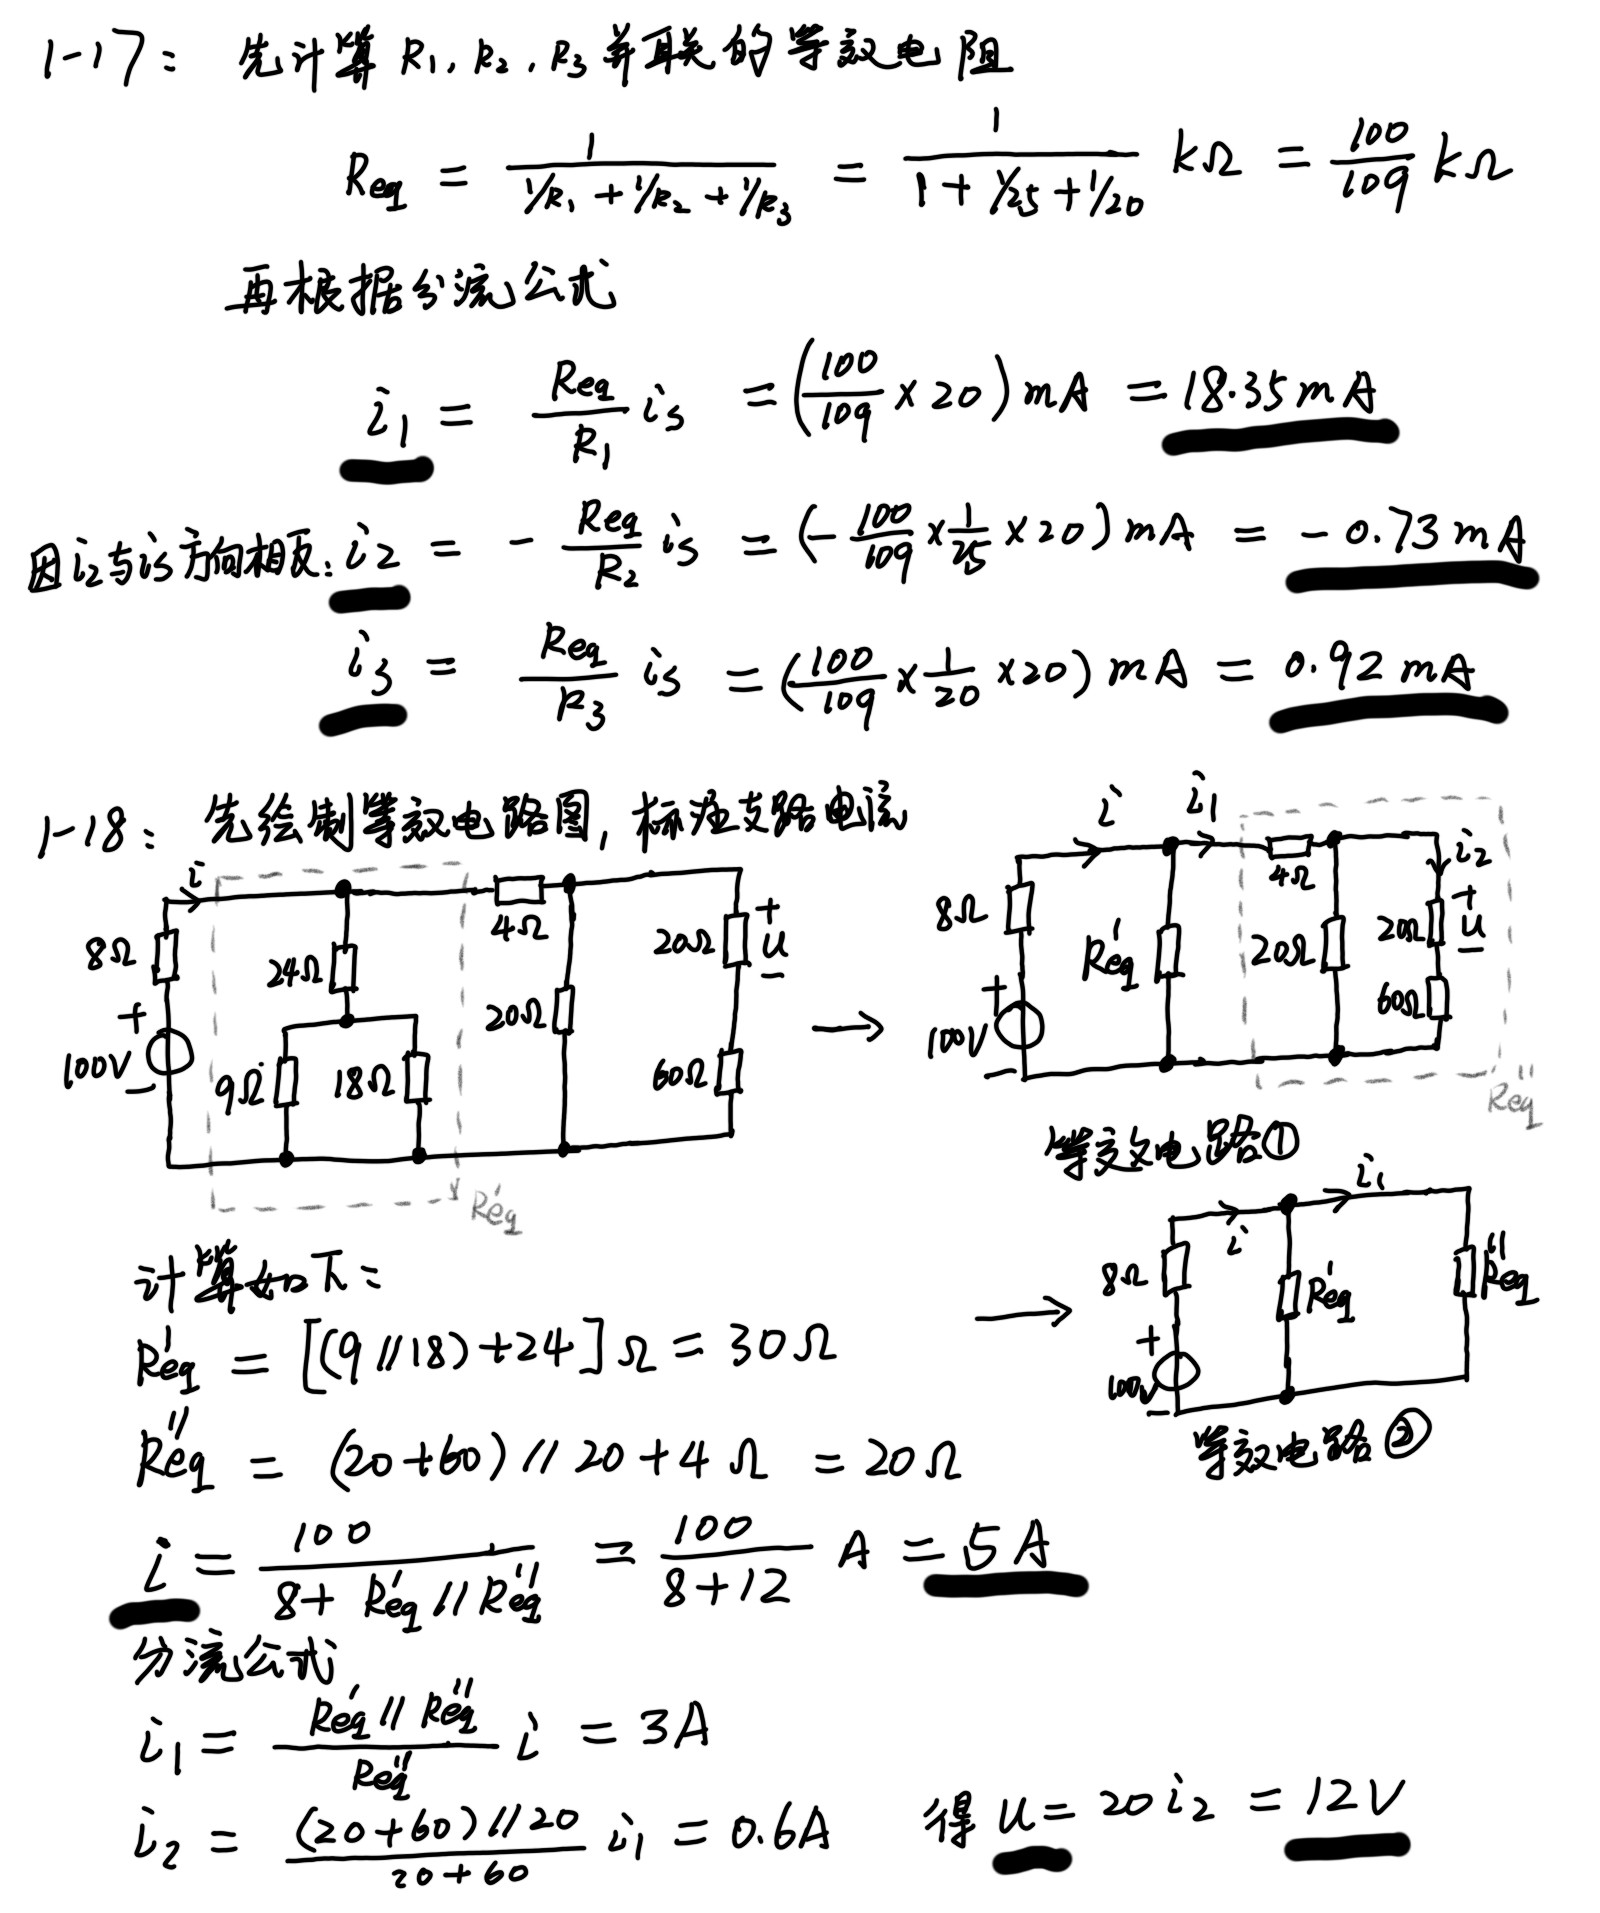 1-17: 先计算 R₁, R₂, R₃ 并联的等效电阻
Req = 1/(1/R₁ + 1/R₂ + 1/R₃) = 1/(1 + 1/25 + 1/20) kΩ = 100/109 kΩ
再根据分流公式
i₁ = Req/R₁ is = (100/109 × 20) mA = 18.35 mA
因i₂与is方向相反: i₂ = - Req/R₂ is = (- 100/109 × 1/25 × 20) mA = - 0.73 mA
i₃ = Req/R₃ is = (100/109 × 1/20 × 20) mA = 0.92 mA
1-18: 先绘制等效电路图, 标注支路电流
i
8Ω
+
100V
-
24Ω
9Ω
18Ω
4Ω
20Ω
20Ω
+
u
-
60Ω
R'eq
→
i
i₁
8Ω
+
100V
-
R'eq
4Ω
20Ω
i₂
20Ω
+
u
-
60Ω
R''eq
等效电路①
→
i
i₁
8Ω
+
100V
-
R'eq
R''eq
等效电路②
计算如下:
R'eq = [(9//18)+24] Ω = 30Ω
R''eq = (20+60)//20+4 Ω = 20Ω
i = 100/(8+ R'eq // R''eq) = 100/(8+12) A = 5A
分流公式
i₁ = (R'eq // R''eq)/R''eq i = 3A
i₂ = ((20+60)//20)/(20+60) i₁ = 0.6A 得 u = 20i₂ = 12V